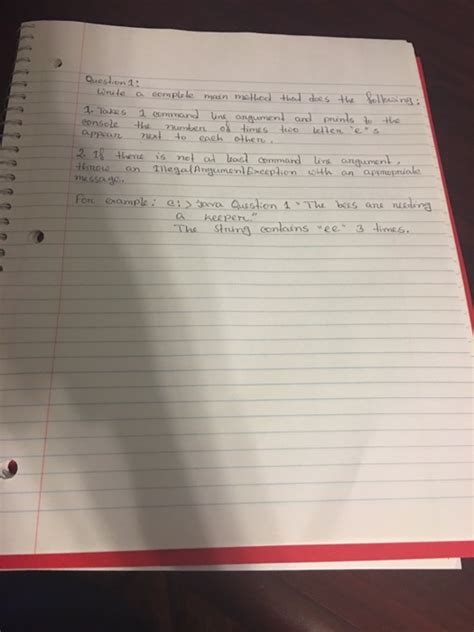 Question 1:
Write a complete main method that does the following:
1. Takes 1 command line argument and prints to the
console the number of times two letter "e"s
appear next to each other.
2. If there is not at least command line argument,
throw an IllegalArgumentException with an appropriate
message.
For example: a:> Java Question 1 "The bees are needing
a keeper."
The string contains "ee" 3 times.